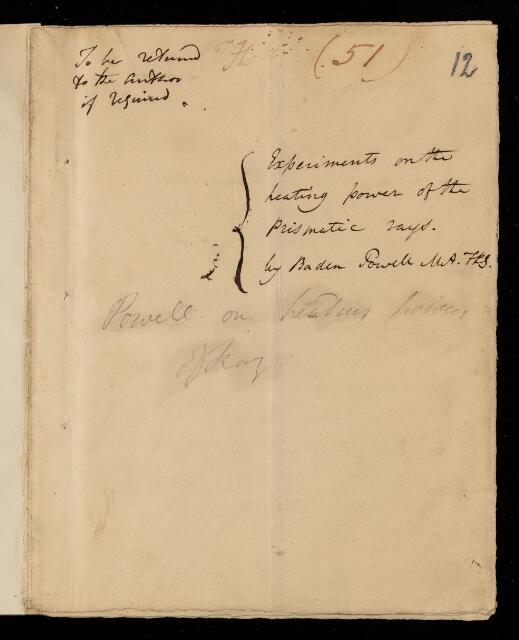 To be returned
to the author
if required.
(51)
12
Experiments on the
heating power of the
Prismatic rays.
by Baden Powell M.A. F.R.S.
Powell on heating powers
of Rays